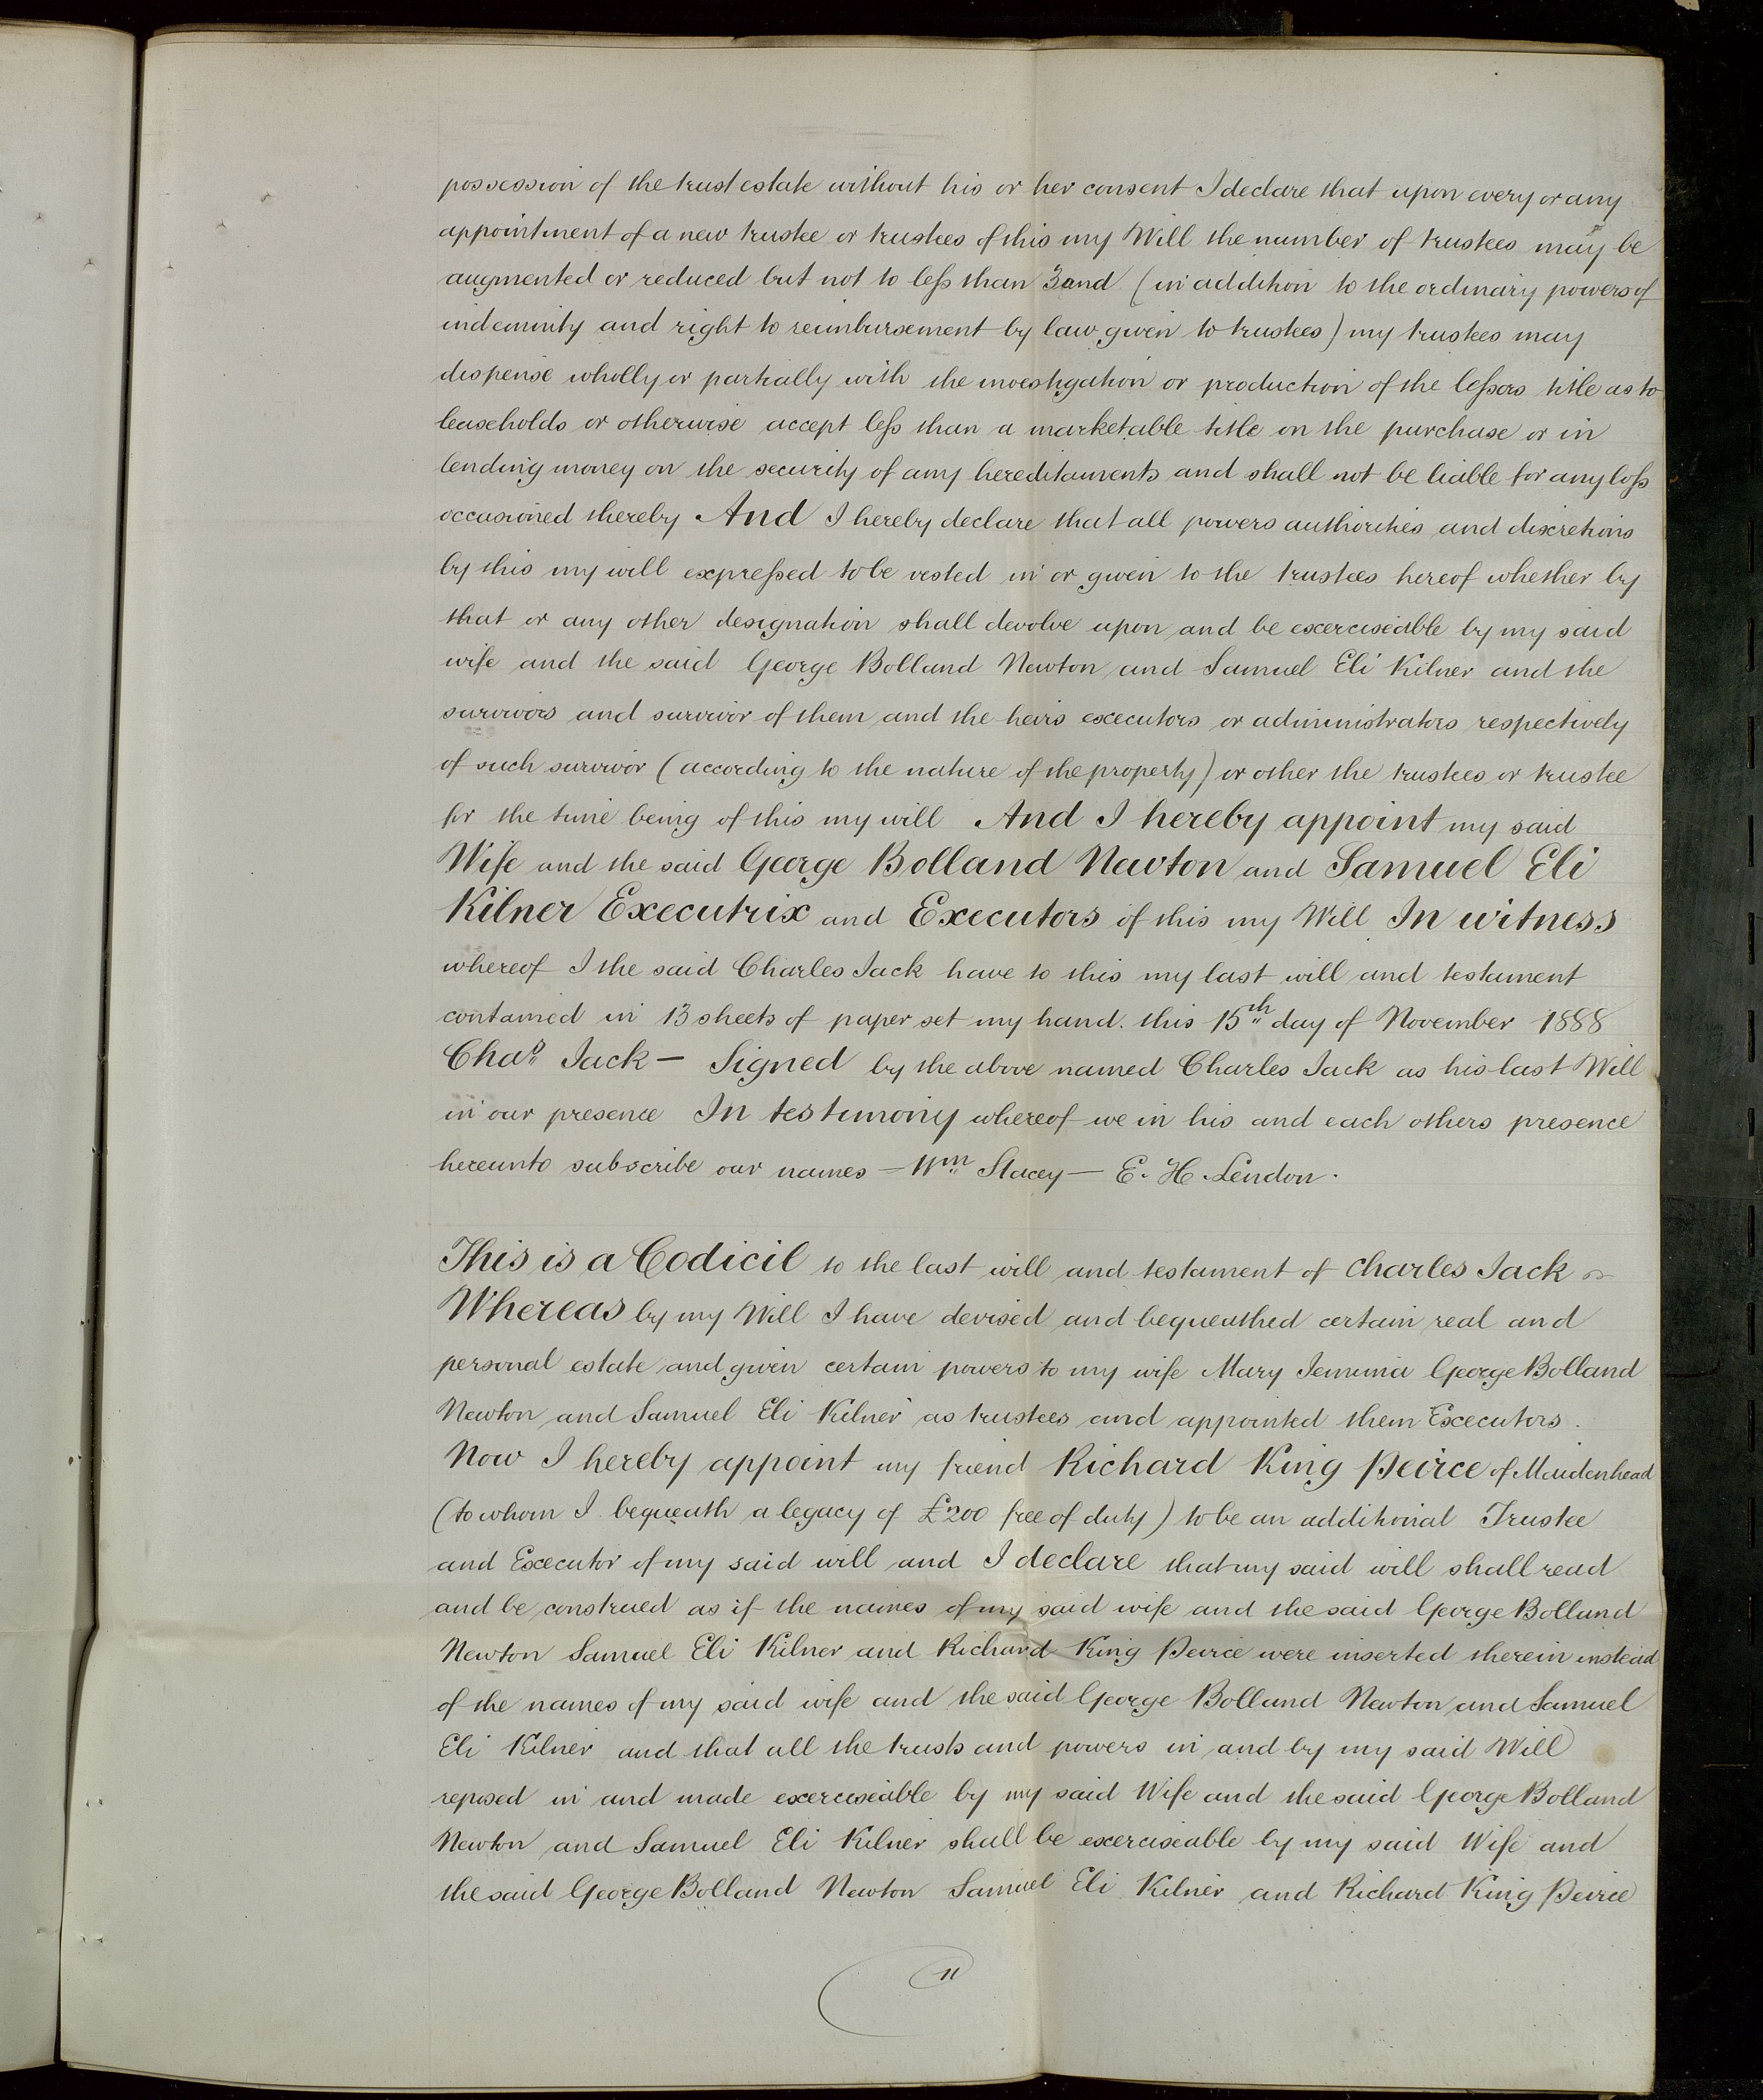 possession of the trust estate without his or her consent I declare that upon every or any
appointment of a new trustee or trustees of this my Will the number of trustees may be
augmented or reduced but not to less than 3 and (in addition to the ordinary powers of
indemnity and right to reimbursement by law given to trustees) my trustees may
dispense wholly or partially with the investigation or production of the lessors title as to
leaseholds or otherwise accept less than a marketable title on the purchase or in
lending money on the security of any hereditaments and shall not be liable for any loss
occasioned thereby And I hereby declare that all powers authorities and discretions
by this my will expressed to be vested in or given to the trustees hereof whether by
that or any other designation shall devolve upon and be exerciseable by my said
wife and the said George Bolland Newton and Samuel Eli Kilner and the
survivors and survivor of them and the heirs executors or administrators respectively
of such survivor (according to the nature of the property) or other the trustees or trustee
for the time being of this my will And I hereby appoint my said
Wife and the said George Bolland Newton and Samuel Eli
Kilner Executrix and Executors of this my Will In witness
whereof I the said Charles Jack have to this my last will and testament
contained in 13 sheets of paper set my hand. this 15th day of November 1888
Chas Jack — Signed by the above named Charles Jack as his last Will
in our presence In testimony whereof we in his and each others presence
hereunto subscribe our names — Wm Stacey — E. H. Lendon.
This is a Codicil to the last will and testament of Charles Jack
Whereas by my Will I have devised and bequeathed certain real and
personal estate and given certain powers to my wife Mary Jemima George Bolland
Newton and Samuel Eli Kilner as trustees and appointed them Executors.
Now I hereby appoint my friend Richard King Peirce of Maidenhead
(to whom I bequeath a legacy of £200 free of duty) to be an additional Trustee
and Executor of my said will and I declare that my said will shall read
and be construed as if the names of my said wife and the said George Bolland
Newton Samuel Eli Kilner and Richard King Peirce were inserted therein instead
of the names of my said wife and the said George Bolland Newton and Samuel
Eli Kilner and that all the trusts and powers in and by my said Will
reposed in and made exerciseable by my said Wife and the said George Bolland
Newton and Samuel Eli Kilner shall be exerciseable by my said Wife and
the said George Bolland Newton Samuel Eli Kilner and Richard King Peirce
11